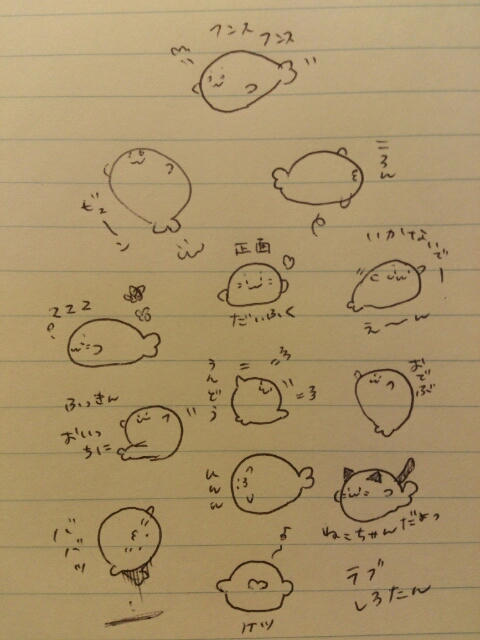 フンス フンス
ビューン
ころん
正面
だいふく
いかないでー
え〜ん
zzz
ふっきん
おいっちに
うんどう
おでぶ
ひんん
ねこちゃんだよっ
バババッ
ケツ
ラブ
しろたん